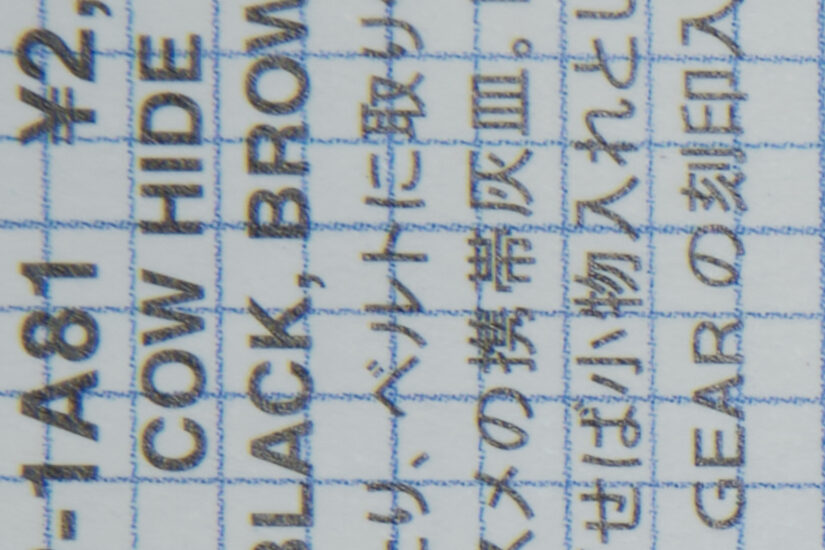 -1A81 ¥2,
COW HIDE
BLACK, BROW
り、ベルトに取り
スメの携帯灰皿。
せば小物入れとし
GEARの刻印入